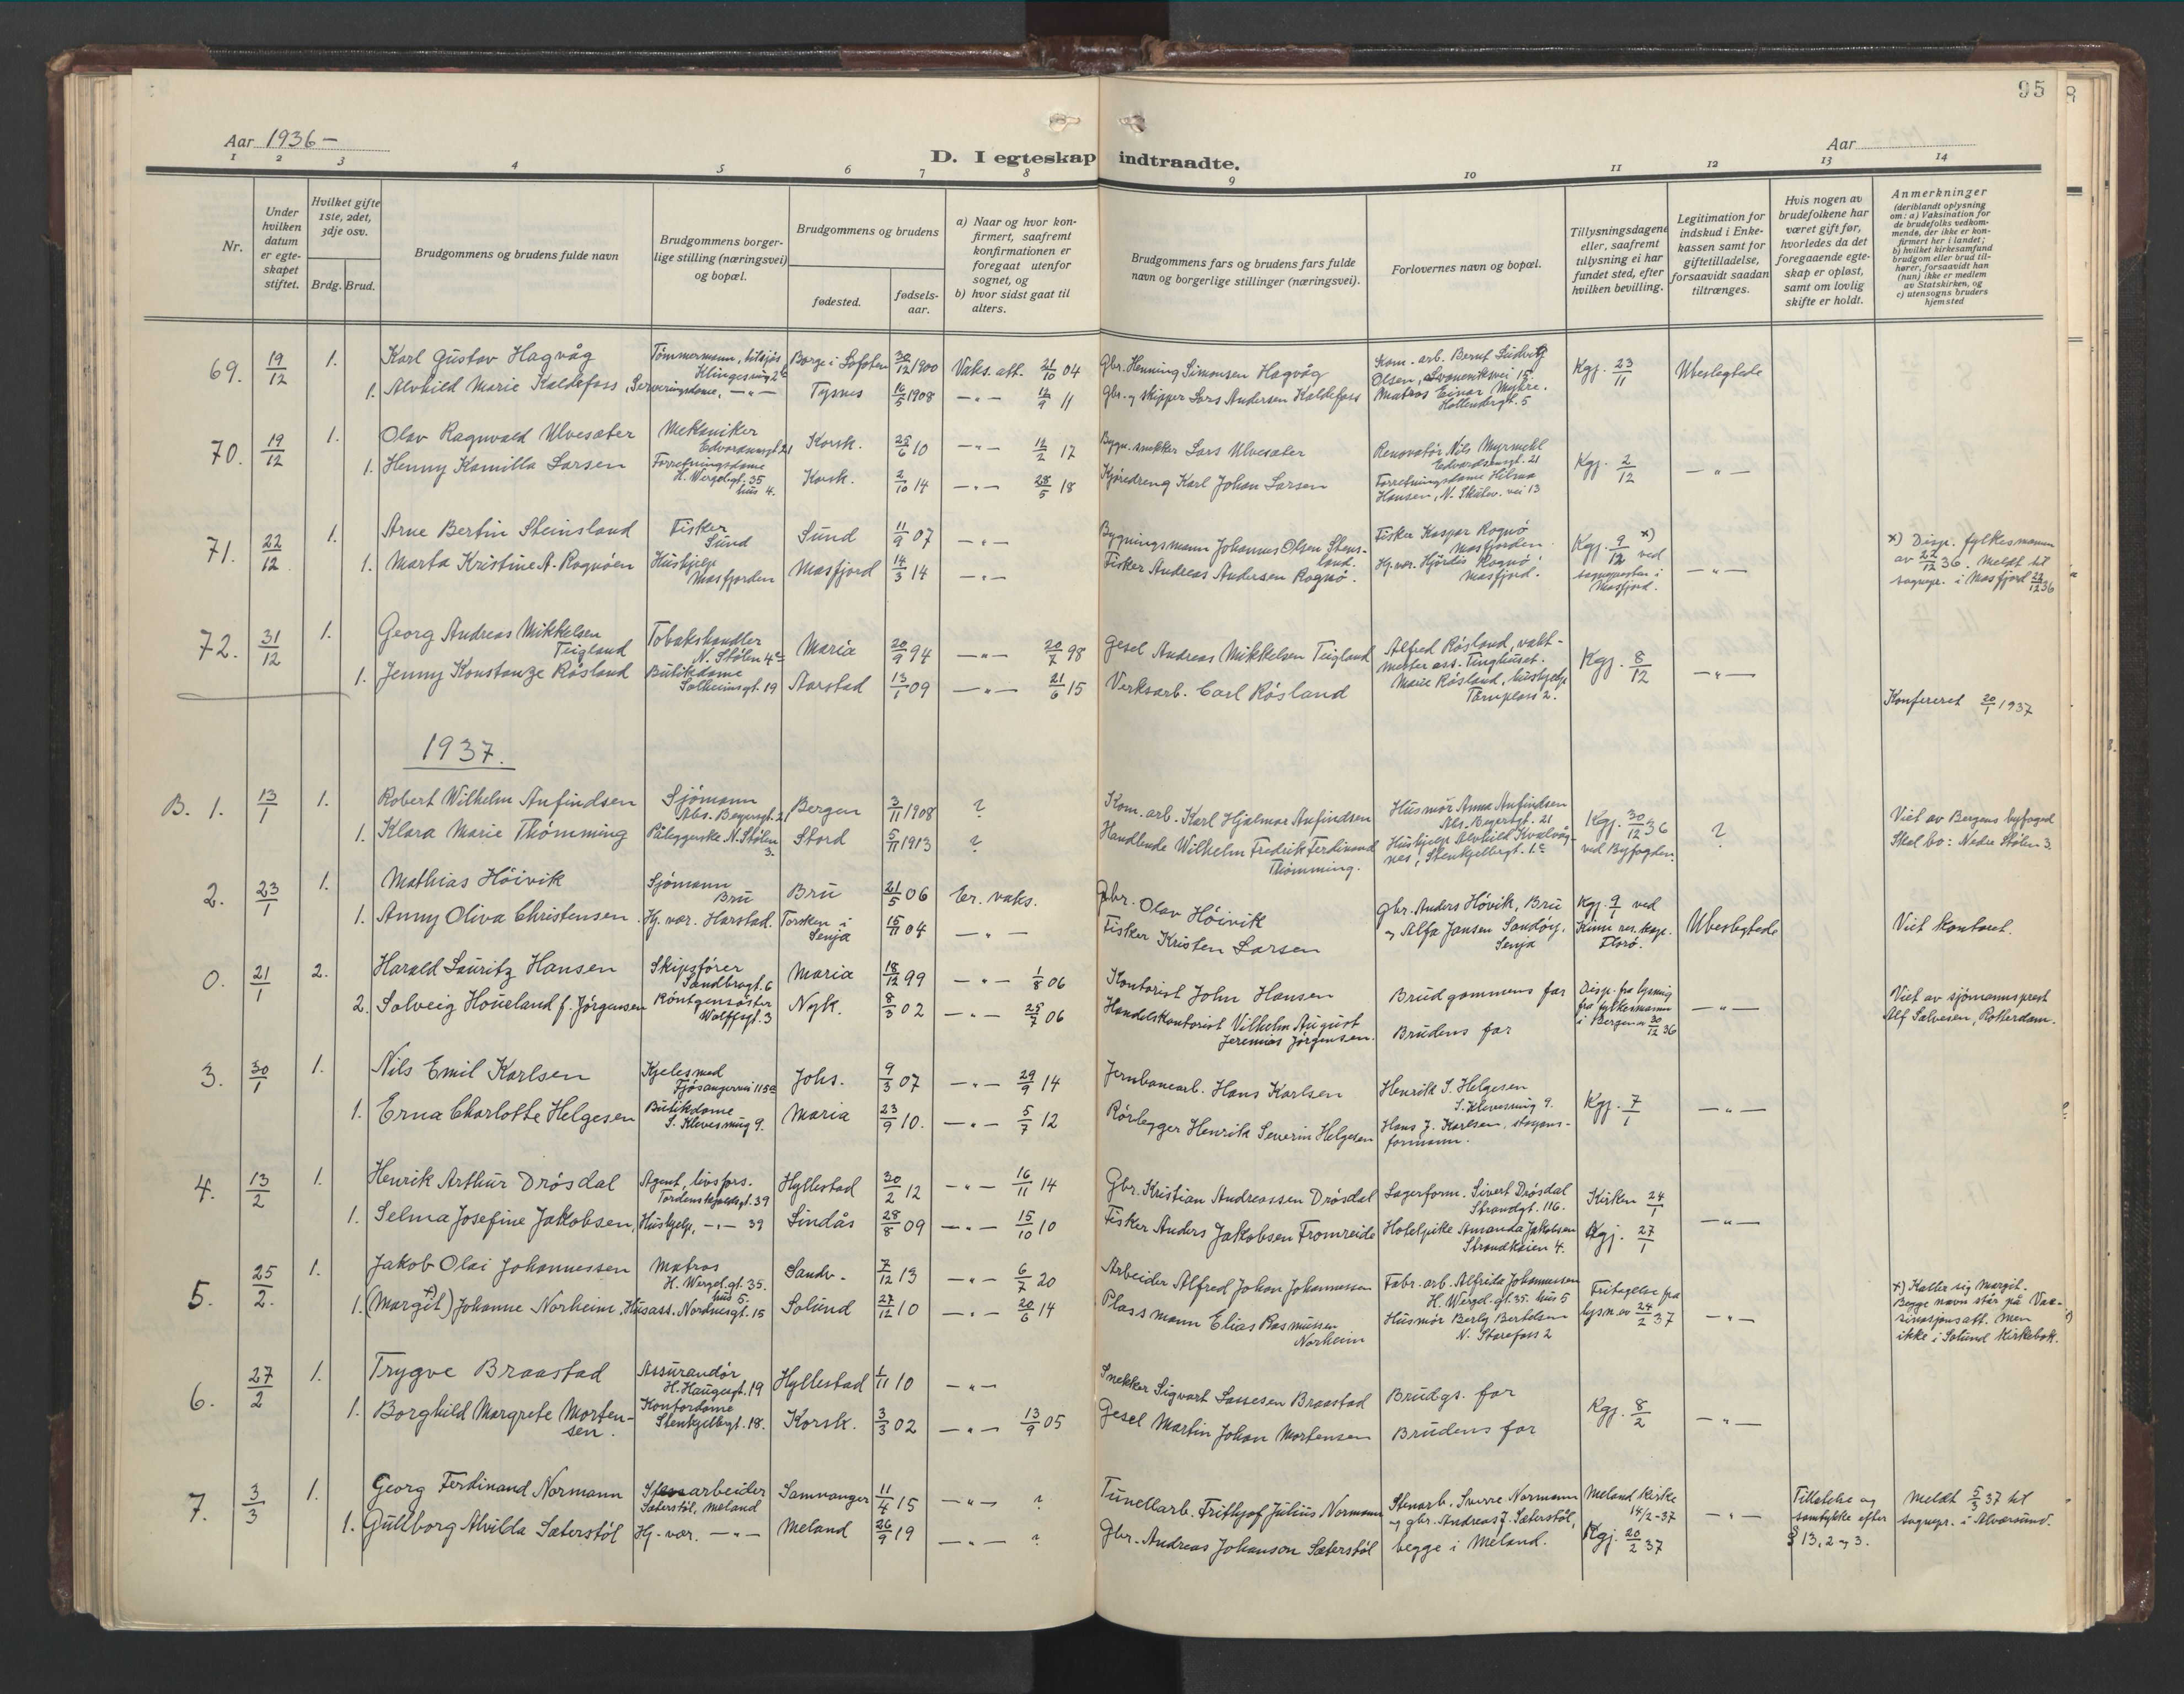 95
Aar 1936 —
Aar
D. I egteskap indtraadte.
1 2 3 4 5 6 7 8 9 10 11 12 13 14
Nr.
Under hvilken datum er egteskapet stiftet.
Hvilket gifte 1ste, 2det, 3dje osv.
Brdg. Brud.
Brudgommens og brudens fulde navn
Brudgommens borgerlige stilling (næringsvei) og bopæl.
Brudgommens og brudens
fødested.
fødselsaar.
a) Naar og hvor konfirmert, saafremt konfirmationen er foregaat utenfor sognet, og
b) hvor sidst gaat til alters.
Brudgommens fars og brudens fars fulde navn og borgerlige stillinger (næringsvei).
Forlovernes navn og bopæl.
Tillysningsdagene eller, saafremt tillysning ei har fundet sted, efter hvilken bevilling.
Legitimation for indskud i Enkekassen samt for giftetilladelse, forsaavidt saadan tiltrænges.
Hvis nogen av brudefolkene har været gift før, hvorledes da det foregaaende egteskap er opløst, samt om lovlig skifte er holdt.
Anmerkninger (deriblandt oplysning om: a) Vaksination for de brudefolks vedkommende, der ikke er konfirmert her i landet; b) hvilket kirkesamfund brudgom eller brud tilhører, forsaavidt han (hun) ikke er medlem av Statskirken, og c) utensogns bruders hjemsted
69. 19/12 1. Karl Gustav Hagvåg Tømmermann, Klingesmug 2 Borge i Lofoten 30/12 1900 Vaks. att. 21/10 04 Gbr. Henning Simonsen Hagvåg Kom. arb. Bernt Ludvig Olsen, 15 Kgj. 23/11 Ubeslegtede
1. Alvhild Marie Kaldefoss, Serveringsdame, —„— Tysnes 16/5 1908 —„— 12/9 11 Gbr. og skipper Lars Andersen Kaldefoss Matros Einar Myhre. Hollendergt. 5
70. 19/12 1. Olav Ragnvald Ulvesæter Mekaniker Edvardsensgt. 21 Korsk. 25/6 10 —„— 12/2 17 Bygn. snekker Lars Ulvesæter Renovatør Nils Myrmehl Edvardsensgt. 21 Kgj. 2/12 —„—
1. Henny Kamilla Larsen Forretningsdame H. Wergelsgt. 35 hus 4. Korsk. 2/10 14 —„— 28/5 18 Kjøredreng Karl Johan Larsen Forretningsdame Hilma Hansen, N. Skutev. vei 13
71. 22/12 1. Arne Bertin Steinsland Fisker Sund Sund 11/9 07 —„— Bygningsmann Johannes Olsen Stensland. Fisker Kaspar Rognø Masfjorden Kgj. 9/12 x) ved sognepresten i Masfjord. —„— x) Disp. fylkesmannen av 22/12 36. Meldt til sognepr. i Masfjord 22/12 36
1. Marta Kristine A. Rognøen Hushjelp Masfjorden Masfjord 14/3 14 —„— Fisker Andreas Andersen Rognø. Hj. vær. Hjørdis Rognø Masfjord.
72. 31/12 1. Georg Andreas Mikkelsen Teigland Tobakshandler N. Stølen 4 Maria 20/9 94 —„— 20/7 98 Gesel Andreas Mikkelsen Teigland Alfred Røsland, vaktmester ass. Tinghuset. Kgj. 8/12 —„—
1. Jenny Konstanze Røsland Butikdame Solheimsgt. 19 Aarstad 13/1 09 —„— 21/6 15 Verksarb. Carl Røsland Marie Røsland, hushjelp Tårnplass 2.
Konfereret 20/1 1937
1937.
B. 1. 13/1 1. Robert Wilhelm Anfindsen Sjømann Abs. Beyersgt. 21 Bergen 3/11 1908 ? Kom. arb. Karl Hjalmar Anfindsen Husmor Anna Anfindsen Abs. Beyersgt. 21 Kgj. 30/12 36 ved Byfogden. ? Viet av Bergens byfoged Skal bo: Nedre Stølen 3.
1. Klara Marie Thømming Påleggerske N. Stølen 3. Stord 5/11 1913 ? Handlende Wilhelm Fredrik Ferdinand Thømming. Hushjelp Alvhild Kvalvågnes, Stenkjellergt. 1
2. 23/1 1. Mathias Høivik Sjømann Bru Bru 21/5 06 Er. vaks. Gbr. Olav Høivik Gbr. Anders Høvik, Bru Kgj. 9/1 ved Kinn res. kap. Florø. Ubeslegtede Viet kontoret.
1. Anny Oliva Christensen Hj. vær. Harstad. Torsken i Senja 15/11 04 —„— Fisker Kristen Larsen og Alfa Jansen Sandøy, Senja
0. 21/1 2. Harald Lauritz Hansen Skipsfører Sandbrogt. 6 Maria 18/12 99 —„— 1/8 06 Kontorist John Hansen Brudgommens far Disp. fra lysning fra fylkesmannen i Bergen av 30/12 36 —„— Viet av sjømannsprest Alf Salvesen, Rotterdam.
2. Solveig Houeland f. Jørgensen Røntgensøster Wolffsgt. 3 Nyk. 8/3 02 —„— 25/7 06 Handelskontorist Vilhelm August Jeremias Jørgensen. Brudens far
3. 30/1 1. Nils Emil Karlsen Kjelesmed Fjøsangervei 115 Johs. 9/3 07 —„— 29/9 14 Jernbanearb. Hans Karlsen Henrik S. Helgesen S. Klevesmug 9. Kgj. 7/1 —„—
1. Erna Charlotte Helgesen Butikdame S. Klevesmug 9. Maria 23/9 10. —„— 5/7 12 Rørlegger Henrik Severin Helgesen Hans J. Karlsen, formann.
4. 13/2 1. Henrik Arthur Drøsdal Agent, livsfors. Tordenskjoldsgt. 39 Hyllestad 30/2 12 —„— 16/11 14 Gbr. Kristian Andreassen Drøsdal Lagerform. Sivert Drøsdal Strandgt. 116. Kirken 24/1 —„—
1. Selma Josefine Jakobsen, Hushjelp, —„— 39 Lindås 28/8 09 —„— 15/10 10 Fisker Anders Jakobsen Fromreide Hotelpike Amanda Jakobsen Strandkaien 4. Kgj. 27/1
5. 25/2. 1. Jakob Olai Johannessen Matros H. Wergel. gt. 35. hus 5. Sandv. 7/12 13 —„— 6/7 20 Arbeider Alfred Johan Johannessen Fabr. arb. Alfrida Johannessen H. Wergel. gt. 35. hus 5 Fritagelse fra lysn. av 24/2 37 —„— x) Kaller sig Margit. Begge navn står på Vaksinasjonsatt. men ikke i Solund Kirkebok.
1. (Margit) x) Johanne Norheim, Husass. Nordnesgt. 15 Solund 27/12 10 —„— 20/6 14 Plassmann Elias Rasmussen Norheim Husmor Berly Bertelsen N. Storefoss 2
6. 27/2 1. Trygve Braastad Assurandør H. Haugesgt. 19 Hyllestad 1/11 10 —„— Snekker Sigvart Lassesen Braastad Brudgs. far Kgj. 8/2 —„—
1. Borghild Margrete Mortensen. Kontordame Stenkjellergt. 18. Korsk. 3/3 02 —„— 13/9 05 Gesel Martin Johan Mortensen Brudens far
7. 3/3 1. Georg Ferdinand Normann Stenarbeider Sæterstøl, Meland Samnanger 11/4 15 —„— ? Tunellarb. Frithjof Julius Normann Stenarb. Sverre Normann Meland kirke 14/2-37 —„— Tillatelse og samtykke efter § 13, 2 og 3. Meldt 5/3 37 til sognepr. i Alversund.
1. Gullborg Alvilda Sæterstøl Hj. vær. —„— Meland 26/9 19 —„— ? Gbr. Andreas Johanson Sæterstøl og gbr. Andreas J. Sæterstøl, begge i Meland. Kgj. 20/2 37